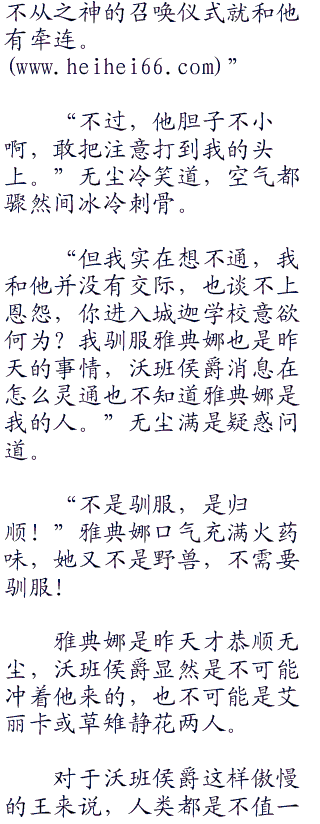 不从之神的召唤仪式就和他
有牵连。
(www.heihei66.com)”
“不过，他胆子不小
啊，敢把注意打到我的头
上。”无尘冷笑道，空气都
骤然间冰冷刺骨。
“但我实在想不通，我
和他并没有交际，也谈不上
恩怨，你进入城迦学校意欲
何为？我驯服雅典娜也是昨
天的事情，沃班侯爵消息在
怎么灵通也不知道雅典娜是
我的人。”无尘满是疑惑问
道。
“不是驯服，是归
顺！”雅典娜口气充满火药
味，她又不是野兽，不需要
驯服！
雅典娜是昨天才恭顺无
尘，沃班侯爵显然是不可能
冲着他来的，也不可能是艾
丽卡或草雉静花两人。
对于沃班侯爵这样傲慢
的王来说，人类都是不值一